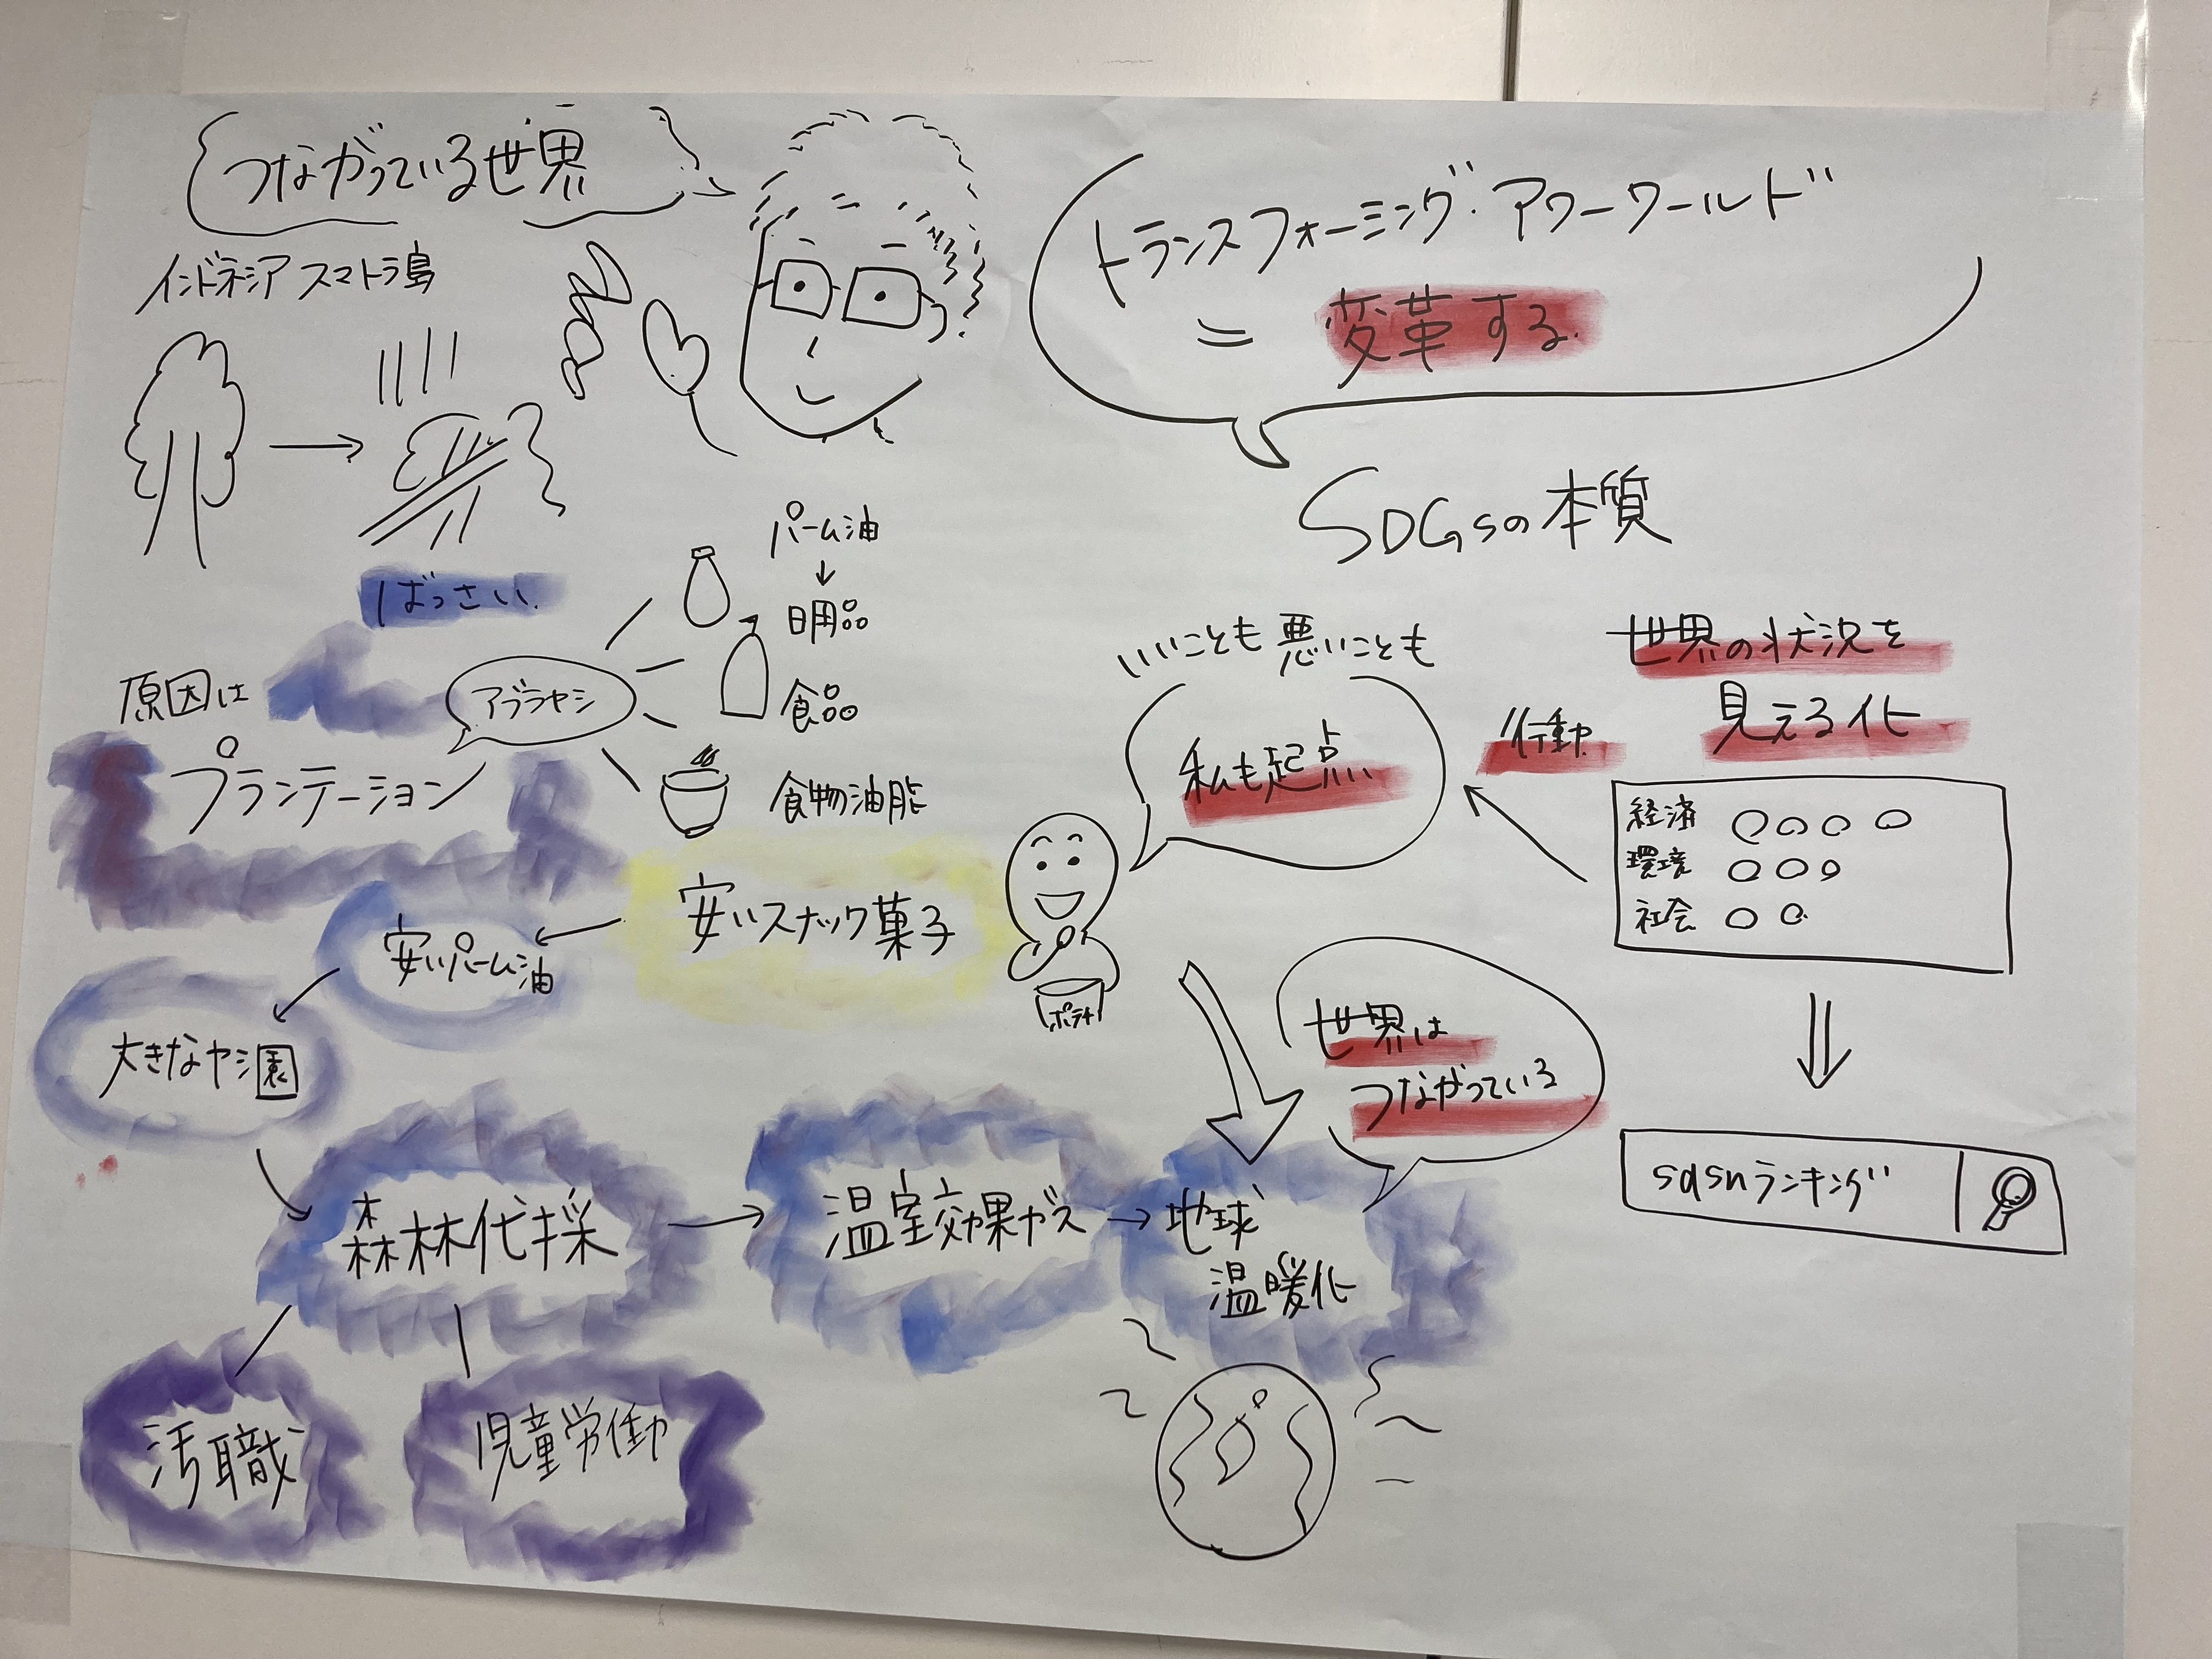 つながっている世界
インドネシア スマトラ島
ばっさい
原因は
プランテーション
アブラヤシ
パーム油
日用品
食品
食物油脂
安いスナック菓子
安いパーム油
大きなヤシ園
森林代採
温室効果ガス
地球
温暖化
汚職
児童労働
トランスフォーミング・アワーワールド
= 変革する
SDGsの本質
いいことも悪いことも
私も起点
ポテチ
行動
世界の状況を
見える化
経済 〇〇〇〇
環境 〇〇〇
社会 〇〇
世界は
つながっている
sdsnランキング